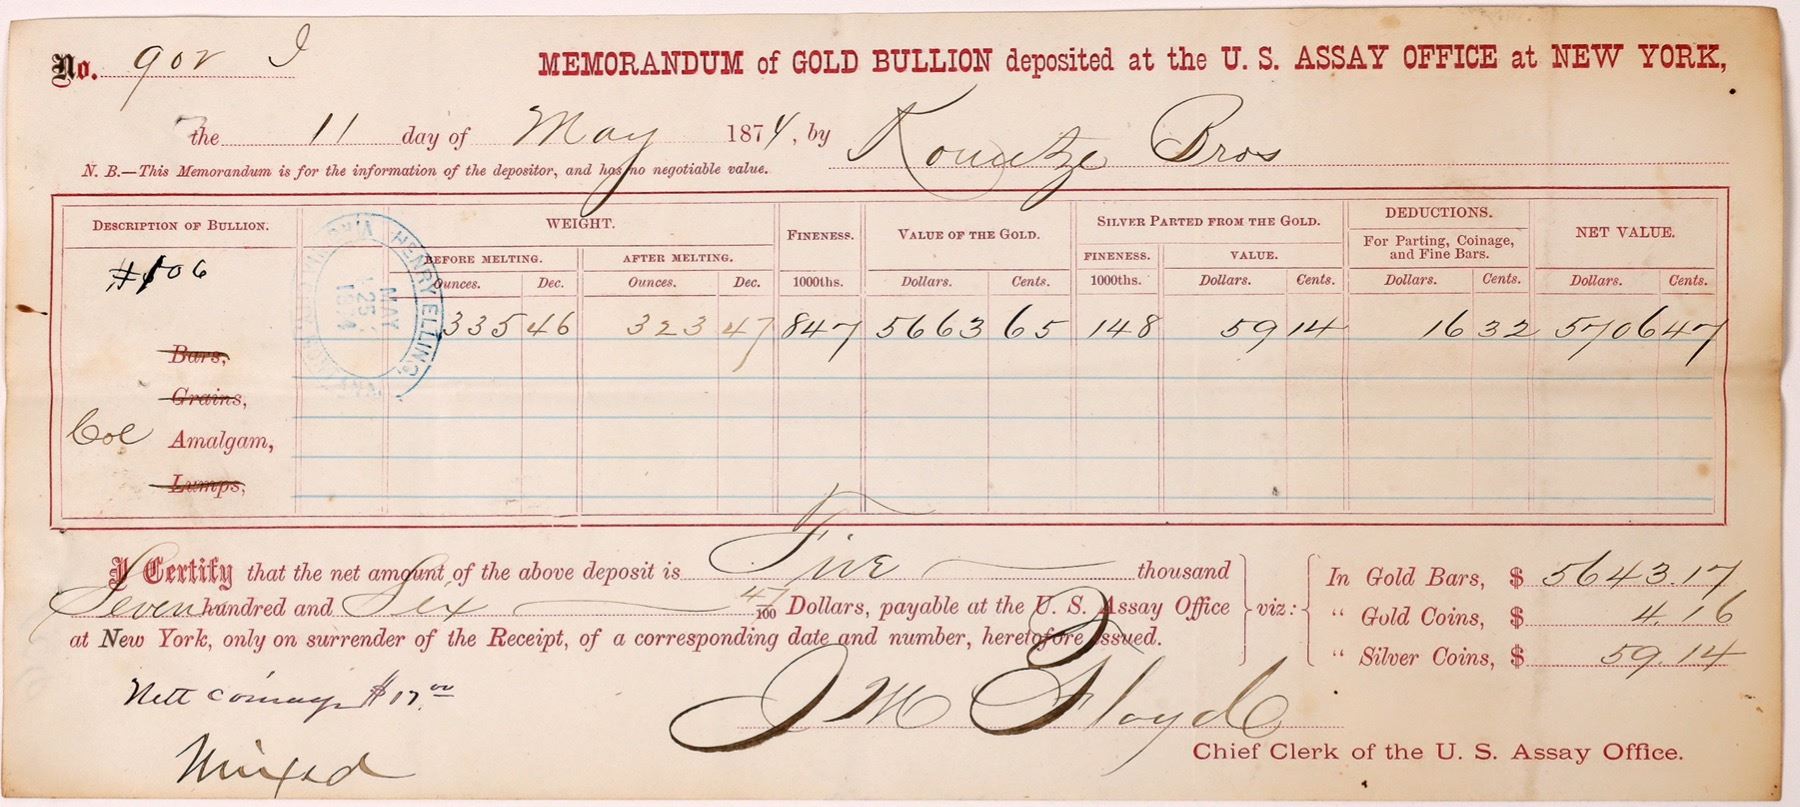 No. 902 I
MEMORANDUM of GOLD BULLION deposited at the U. S. ASSAY OFFICE at NEW YORK,
the 11 day of May 1874, by Kountze Bros
N. B.—This Memorandum is for the information of the depositor, and has no negotiable value.
DESCRIPTION OF BULLION. WEIGHT. FINENESS. VALUE OF THE GOLD. SILVER PARTED FROM THE GOLD. DEDUCTIONS. NET VALUE.
BEFORE MELTING. AFTER MELTING. FINENESS. VALUE. For Parting, Coinage, and Fine Bars.
Ounces. Dec. Ounces. Dec. 1000ths. Dollars. Cents. 1000ths. Dollars. Cents. Dollars. Cents. Dollars. Cents.
#106
HENRY ELLING,
MAY
25
1874
VIRGINIA
MONTANA
335 46 323 47 847 5663 65 148 59 14 16 32 5706 47
Bars,
Grains,
Col Amalgam,
Lumps,
I Certify that the net amount of the above deposit is Five thousand
Seven hundred and Six 47/100 Dollars, payable at the U. S. Assay Office
at New York, only on surrender of the Receipt, of a corresponding date and number, heretofore issued.
viz:
In Gold Bars, $ 5643.17
" Gold Coins, $ 4.16
" Silver Coins, $ 59.14
Nett coinage $17.00
Mixed
J M Floyd
Chief Clerk of the U. S. Assay Office.